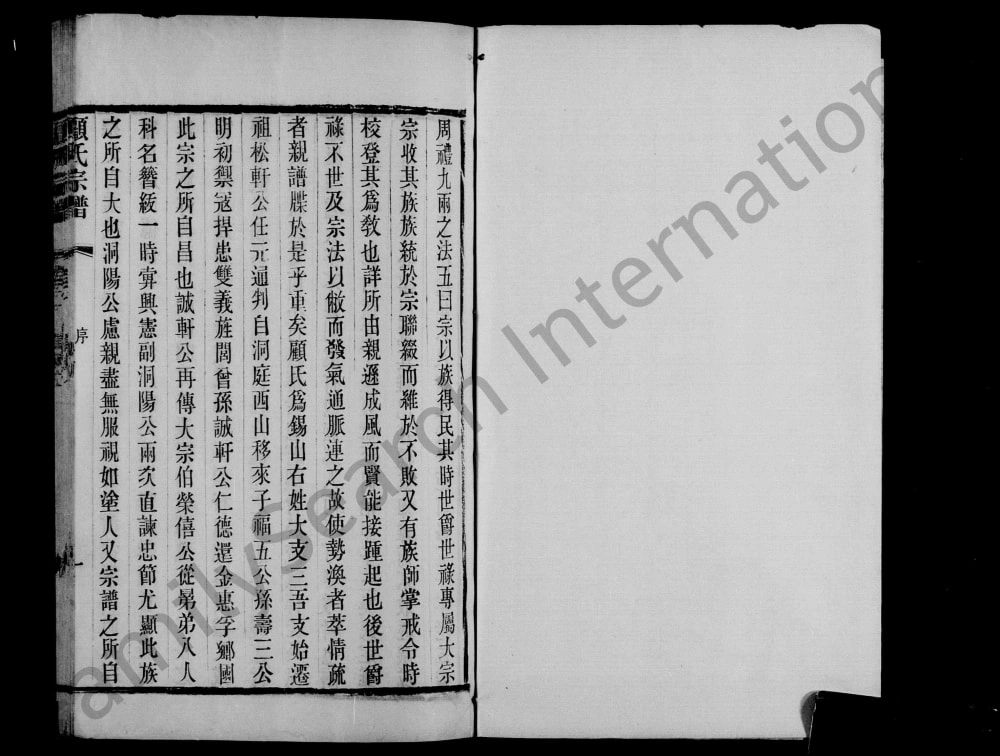 周禮九兩之法五曰宗以族得民其時世爵世祿專屬大宗
宗收其族族統於宗聯綴而維於不敗又有族師掌戒令時
校登其爲敎也詳所由親遜成風而賢能接踵起也後世爵
祿不世及宗法以敝而發氣通脈連之故使勢渙者萃情疏
者親譜牒於是乎重矣顧氏爲錫山右姓大支三吾支始遷
祖松軒公任元通判自洞庭西山移來子福五公孫壽三公
明初禦寇捍患雙義旌閭曾孫誠軒公仁德還金惠孚鄉國
此宗之所自昌也誠軒公再傳大宗伯榮僖公從晜弟八人
科名簪綬一時彙興憲副洞陽公兩次直諫忠節尤顯此族
之所自大也洞陽公慮親盡無服視如塗人又宗譜之所自
顧氏宗譜
序
一
amilySearch International